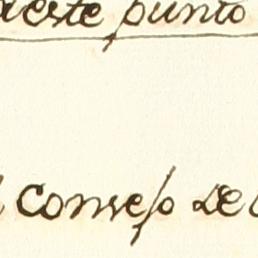 este punto
Consejo de